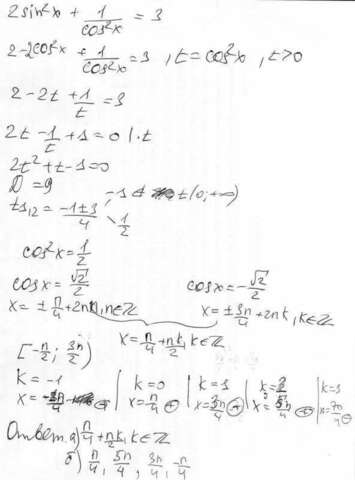 2sin²x + 1/cos²x = 3
2-2cos²x + 1/cos²x = 3, t = cos²x, t>0
2-2t + 1/t = 3
2t - 1/t + 1 = 0 | · t
2t² + t - 1 = 0
D = 9
t₁,₂ = (-1±3)/4
-1 ∉ t (0; +∞)
1/2
cos²x = 1/2
cosx = √2/2 cosx = -√2/2
x = ± π/4 + 2πn, n∈ℤ x = ± 3π/4 + 2πk, k∈ℤ
x = π/4 + πk/2, k∈ℤ
[-π/2; 3π/2)
k = -1 | k = 0 | k = 1 | k = 2 | k = 3
x = -π/4 ⊕ | x = π/4 ⊕ | x = 3π/4 ⊕ | x = 5π/4 ⊕ | x = 7π/4 ⊖
Ответ: а) π/4 + πk/2, k∈ℤ
б) π/4, 5π/4, 3π/4, -π/4